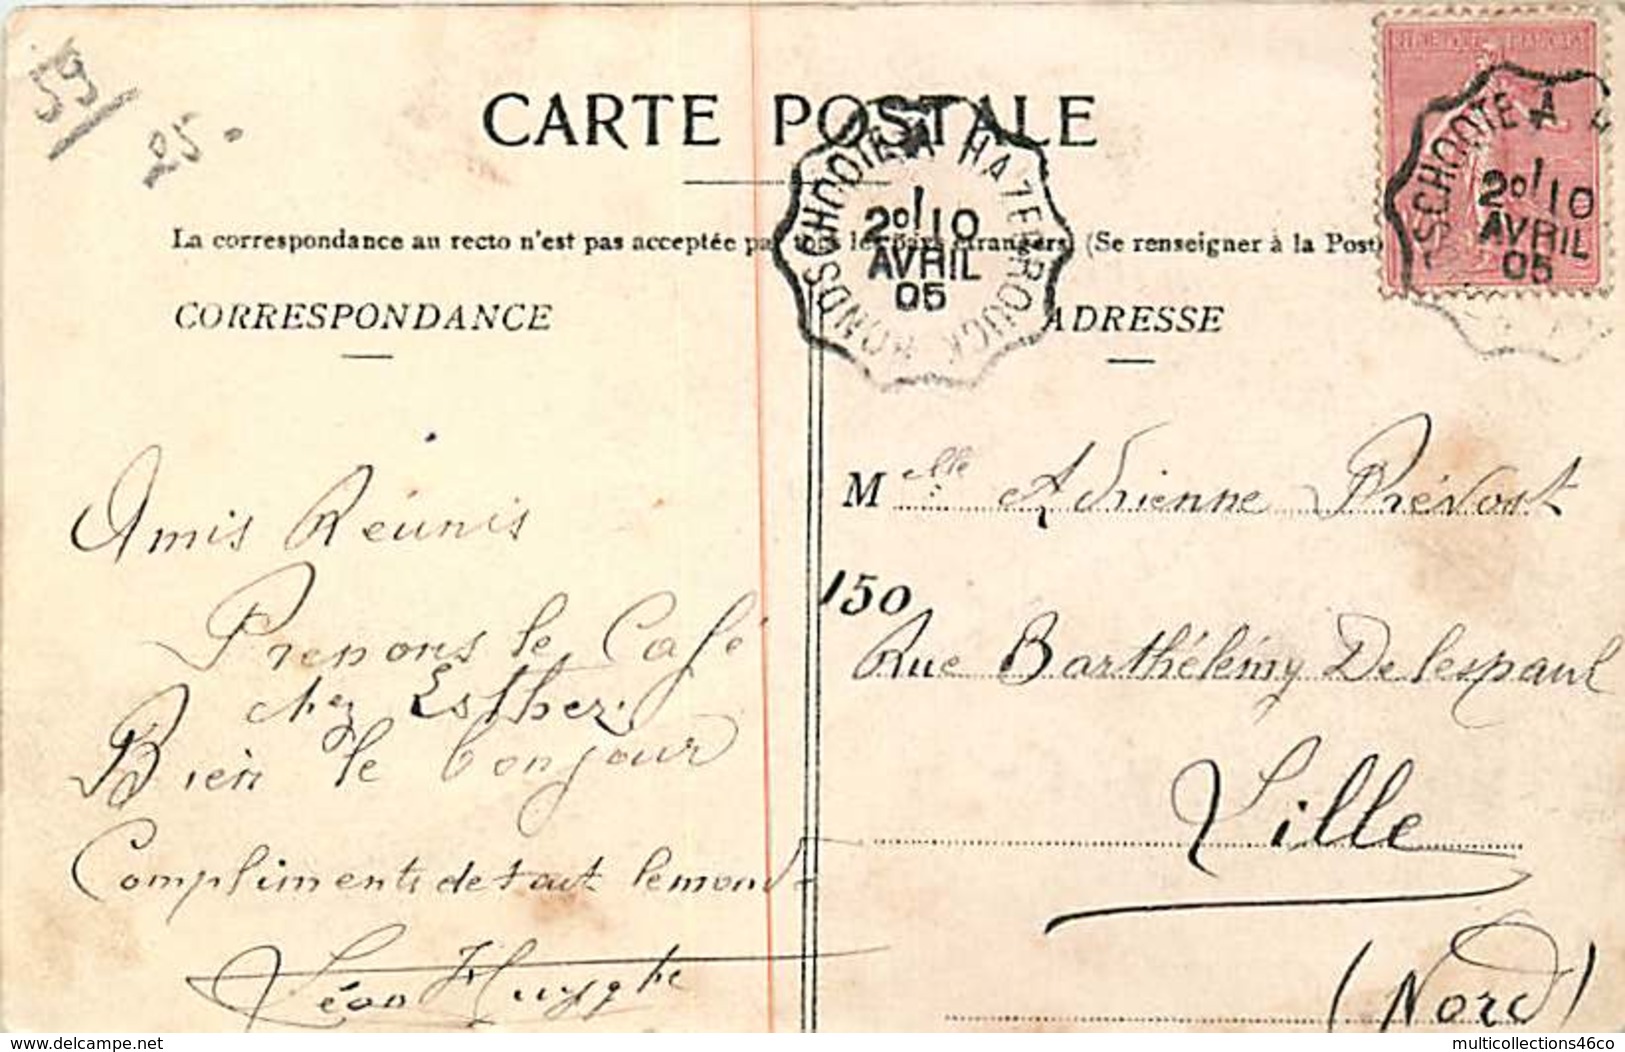 59
25.
CARTE POSTALE
La correspondance au recto n'est pas acceptée par tous les pays étrangers (Se renseigner à la Post
CORRESPONDANCE
ADRESSE
HONDSCHOOTE A HAZEBROUCK
2° / 10
AVRIL
05
SCHOOTE A H
2° / 10
AVRIL
05
Amis Réunis
Prenons le Café
chez Esther.
Bien le bonjour
Compliments de tout le monde
Léon Huyghe
Melle Adrienne Prévost
150
Rue Barthélémy Delespaul
Lille
(Nord)
delcampe.net
multicollections46co